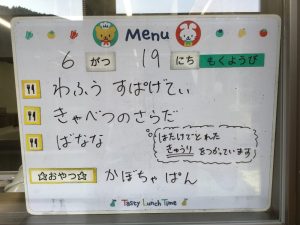 Menu
6 がつ 19 にち もくようび
わふう すぱげてぃ
きゃべつのさらだ
ばなな
はたけでとれた
きゅうり をつかっています
☆おやつ☆ かぼちゃ ぱん
Tasty Lunch Time